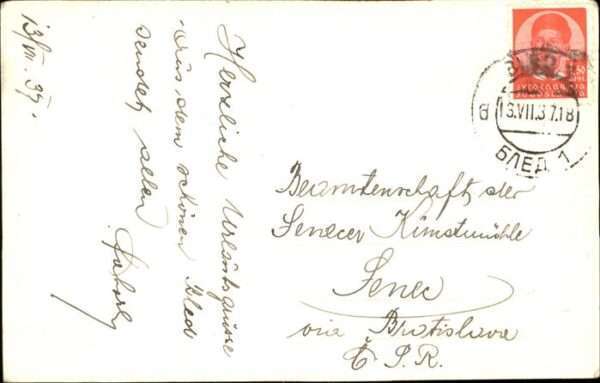 13/VII. 37.
Herzliche Urlaubsgrüsse
aus dem schönen Bled
sendet allen
Beamtenschaft der
Senecer Kunstmühle
Senec
via Bratislava
Č. P. R.
13.VII.37.18
БЛЕД 1